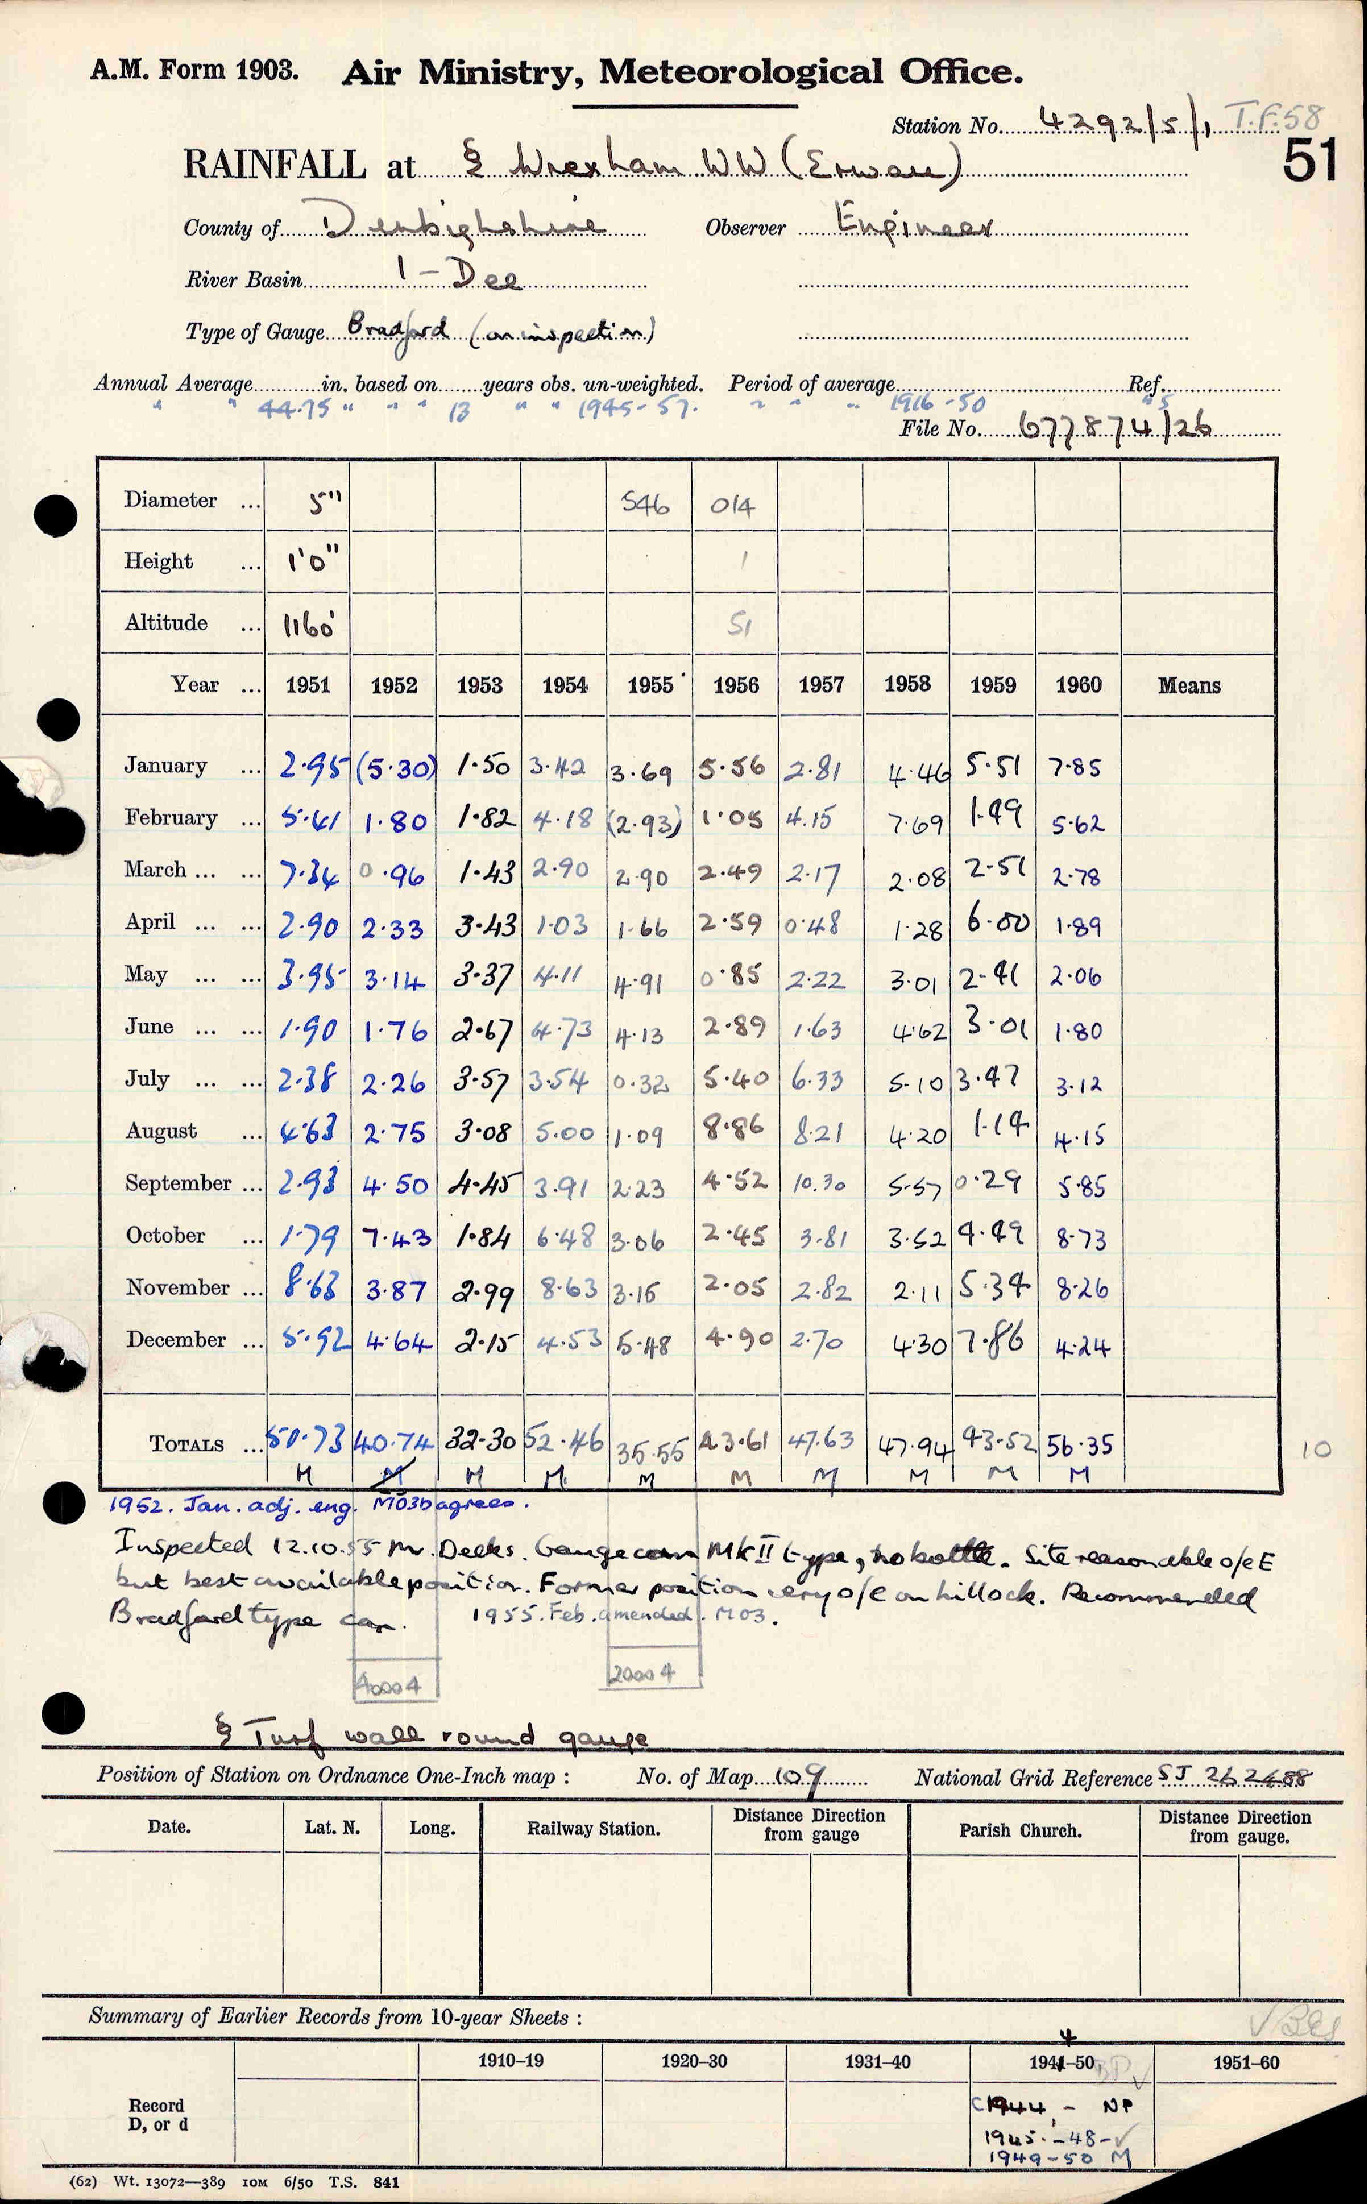 A.M. Form 1903. Air Ministry, Meteorological Office.
Station No. 4292/5/1 T.F.58
51
RAINFALL at § Wrexham WW (Erwau)
County of Denbighshire Observer Engineer
River Basin 1 - Dee
Type of Gauge Bradford (on inspection)
Annual Average in. based on years obs. un-weighted. Period of average Ref.
" " 44.75 " " " 13 " " 1945-57. " " " 1916-50 "S
File No. 677874/26
Diameter ... 5" 546 014
Height ... 1'0" 1
Altitude ... 1160' 51
Year ... 1951 1952 1953 1954 1955 1956 1957 1958 1959 1960 Means
January ... 2.95 (5.30) 1.50 3.42 3.69 5.56 2.81 4.46 5.51 7.85
February ... 5.41 1.80 1.82 4.18 (2.93) 1.05 4.15 7.69 1.49 5.62
March ... ... 7.34 0.96 1.43 2.90 2.90 2.49 2.17 2.08 2.51 2.78
April ... ... 2.90 2.33 3.43 1.03 1.66 2.59 0.48 1.28 6.00 1.89
May ... ... 3.95 3.14 3.37 4.11 4.91 0.85 2.22 3.01 2.41 2.06
June ... ... 1.90 1.76 2.67 4.73 4.13 2.89 1.63 4.62 3.01 1.80
July ... ... 2.38 2.26 3.57 3.54 0.32 5.40 6.33 5.10 3.47 3.12
August ... 4.63 2.75 3.08 5.00 1.09 8.86 8.21 4.20 1.14 4.15
September ... 2.93 4.50 4.45 3.91 2.23 4.52 10.30 5.57 0.29 5.85
October ... 1.79 7.43 1.84 6.48 3.06 2.45 3.81 3.52 4.49 8.73
November ... 8.63 3.87 2.99 8.63 3.15 2.05 2.82 2.11 5.34 8.26
December ... 5.92 4.64 2.15 4.53 5.48 4.90 2.70 4.30 7.86 4.24
TOTALS ... 50.73 40.74 32.30 52.46 35.55 43.61 47.63 47.94 43.52 56.35 10
M M M M M M M M M M
1952. Jan. adj. eng. M03b agrees.
Inspected 12.10.55 Mr. Deeks. Gauge can MkII type, no bottle. Site reasonable o/e E
but best available position. Former position very o/e on hillock. Recommended
Bradford type can. 1955. Feb. amended. M03.
40004 20004
§ Turf wall round gauge
Position of Station on Ordnance One-Inch map : No. of Map 109 National Grid Reference SJ 262488
Date. Lat. N. Long. Railway Station. Distance Direction from gauge Parish Church. Distance Direction from gauge.
Summary of Earlier Records from 10-year Sheets :
4
1910-19 1920-30 1931-40 1941-50 1951-60
Record
D, or d
C1944 - NP
1945 - 48 - ✓
1949-50 M
(62) Wt. 13072—389 10M 6/50 T.S. 841